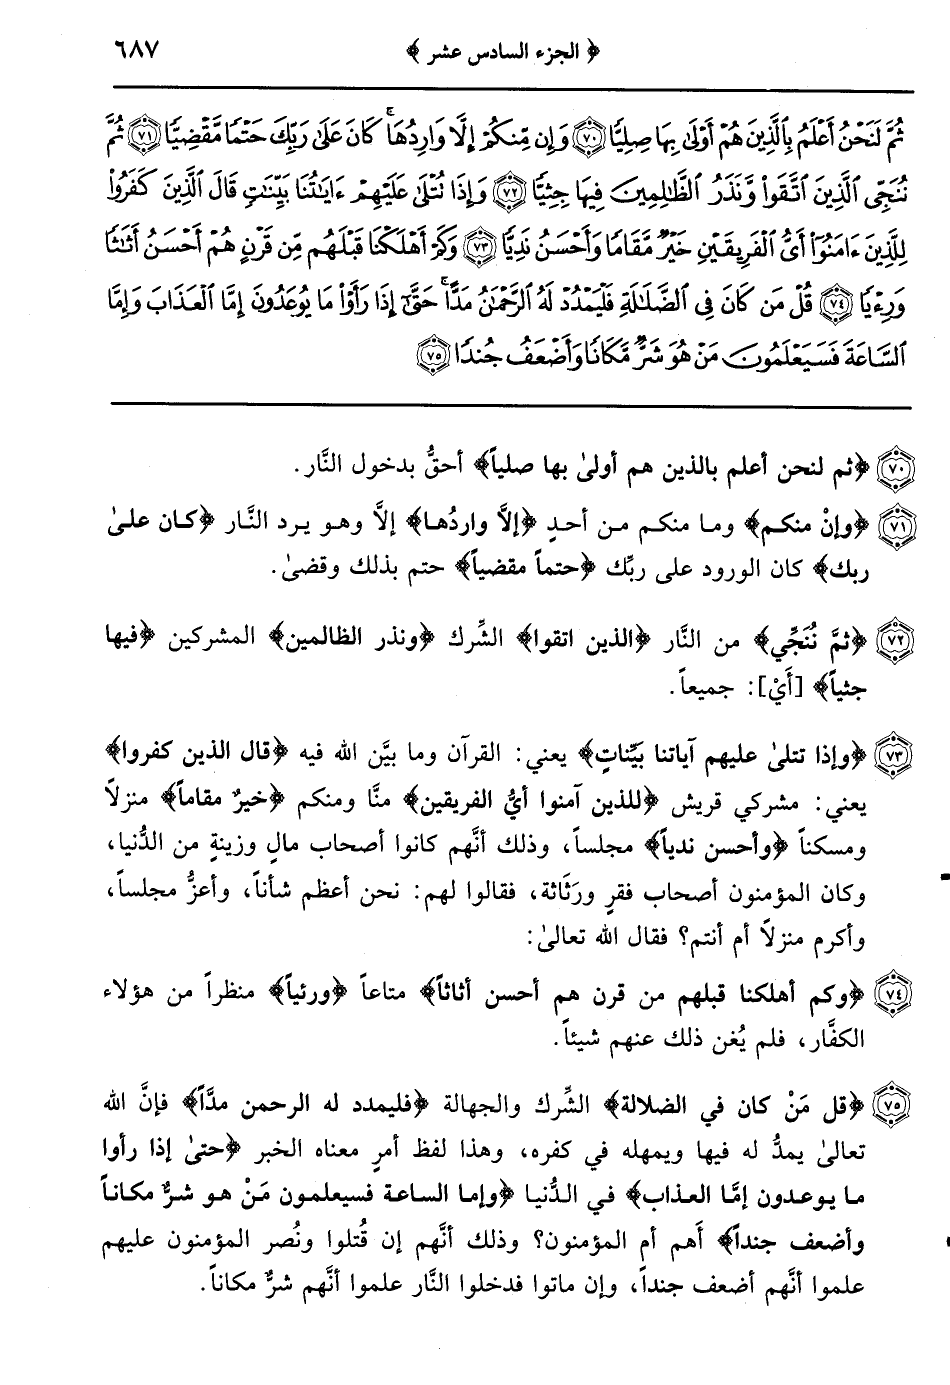 ﴿ الجزء السادس عشر ﴾ ٦٨٧
ثُمَّ لَنَحْنُ أَعْلَمُ بِٱلَّذِينَ هُمْ أَوْلَىٰ بِهَا صِلِيًّا ٧٠ وَإِن مِّنكُمْ إِلَّا وَارِدُهَا ۚ كَانَ عَلَىٰ رَبِّكَ حَتْمًا مَّقْضِيًّا ٧١ ثُمَّ
نُنَجِّى ٱلَّذِينَ ٱتَّقَوا۟ وَّنَذَرُ ٱلظَّـٰلِمِينَ فِيهَا جِثِيًّا ٧٢ وَإِذَا تُتْلَىٰ عَلَيْهِمْ ءَايَـٰتُنَا بَيِّنَـٰتٍ قَالَ ٱلَّذِينَ كَفَرُوا۟
لِلَّذِينَ ءَامَنُوٓا۟ أَىُّ ٱلْفَرِيقَيْنِ خَيْرٌ مَّقَامًا وَأَحْسَنُ نَدِيًّا ٧٣ وَكَمْ أَهْلَكْنَا قَبْلَهُم مِّن قَرْنٍ هُمْ أَحْسَنُ أَثَـٰثًا
وَرِءْيًا ٧٤ قُلْ مَن كَانَ فِى ٱلضَّلَـٰلَةِ فَلْيَمْدُدْ لَهُ ٱلرَّحْمَـٰنُ مَدًّا ۚ حَتَّىٰٓ إِذَا رَأَوْا۟ مَا يُوعَدُونَ إِمَّا ٱلْعَذَابَ وَإِمَّا
ٱلسَّاعَةَ فَسَيَعْلَمُونَ مَنْ هُوَ شَرٌّ مَّكَانًا وَأَضْعَفُ جُندًا ٧٥
٧٠ ﴿ثم لنحن أعلم بالذين هم أولىٰ بها صلياً﴾ أحقُّ بدخول النَّار.
٧١ ﴿وإنْ منكم﴾ وما منكم من أحدٍ ﴿إلَّا واردُها﴾ إلَّا وهو يرد النَّار ﴿كان علىٰ
ربك﴾ كان الورود على ربِّك ﴿حتماً مقضياً﴾ حتم بذلك وقضىٰ.
٧٢ ﴿ثمَّ نُنَجِّي﴾ من النَّار ﴿الذين اتقوا﴾ الشِّرك ﴿ونذر الظالمين﴾ المشركين ﴿فيها
جثياً﴾ [أَيْ]: جميعاً.
٧٣ ﴿وإذا تتلىٰ عليهم آياتنا بيِّناتٍ﴾ يعني: القرآن وما بيَّن الله فيه ﴿قال الذين كفروا﴾
يعني: مشركي قريش ﴿للذين آمنوا أيُّ الفريقين﴾ منَّا ومنكم ﴿خيرٌ مقاماً﴾ منزلاً
ومسكناً ﴿وأحسن ندياً﴾ مجلساً، وذلك أنَّهم كانوا أصحاب مالٍ وزينةٍ من الدُّنيا،
وكان المؤمنون أصحاب فقرٍ ورَثَاثة، فقالوا لهم: نحن أعظم شأناً، وأعزُّ مجلساً،
وأكرم منزلاً أم أنتم؟ فقال الله تعالىٰ:
٧٤ ﴿وكم أهلكنا قبلهم من قرن هم أحسن أثاثاً﴾ متاعاً ﴿ورئياً﴾ منظراً من هؤلاء
الكفَّار، فلم يُغن ذلك عنهم شيئاً.
٧٥ ﴿قل مَنْ كان في الضلالة﴾ الشِّرك والجهالة ﴿فليمدد له الرحمن مدَّاً﴾ فإنَّ الله
تعالىٰ يمدُّ له فيها ويمهله في كفره، وهذا لفظ أمرٍ معناه الخبر ﴿حتىٰ إذا رأوا
ما يوعدون إمَّا العذاب﴾ في الدُّنيا ﴿وإما الساعة فسيعلمون مَنْ هو شرٌّ مكاناً
وأضعف جنداً﴾ أَهم أم المؤمنون؟ وذلك أنَّهم إن قُتلوا ونُصر المؤمنون عليهم
علموا أنَّهم أضعف جنداً، وإن ماتوا فدخلوا النَّار علموا أنَّهم شرٌّ مكاناً.